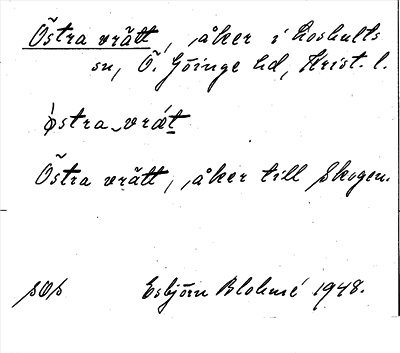 Östra vrätt, åker i Loshults
sn, Ö. Göinge hd, Krist. l.
østra vrát
Östra vrätt, åker till Skogen.
Esbjörn Blohmé 1948.